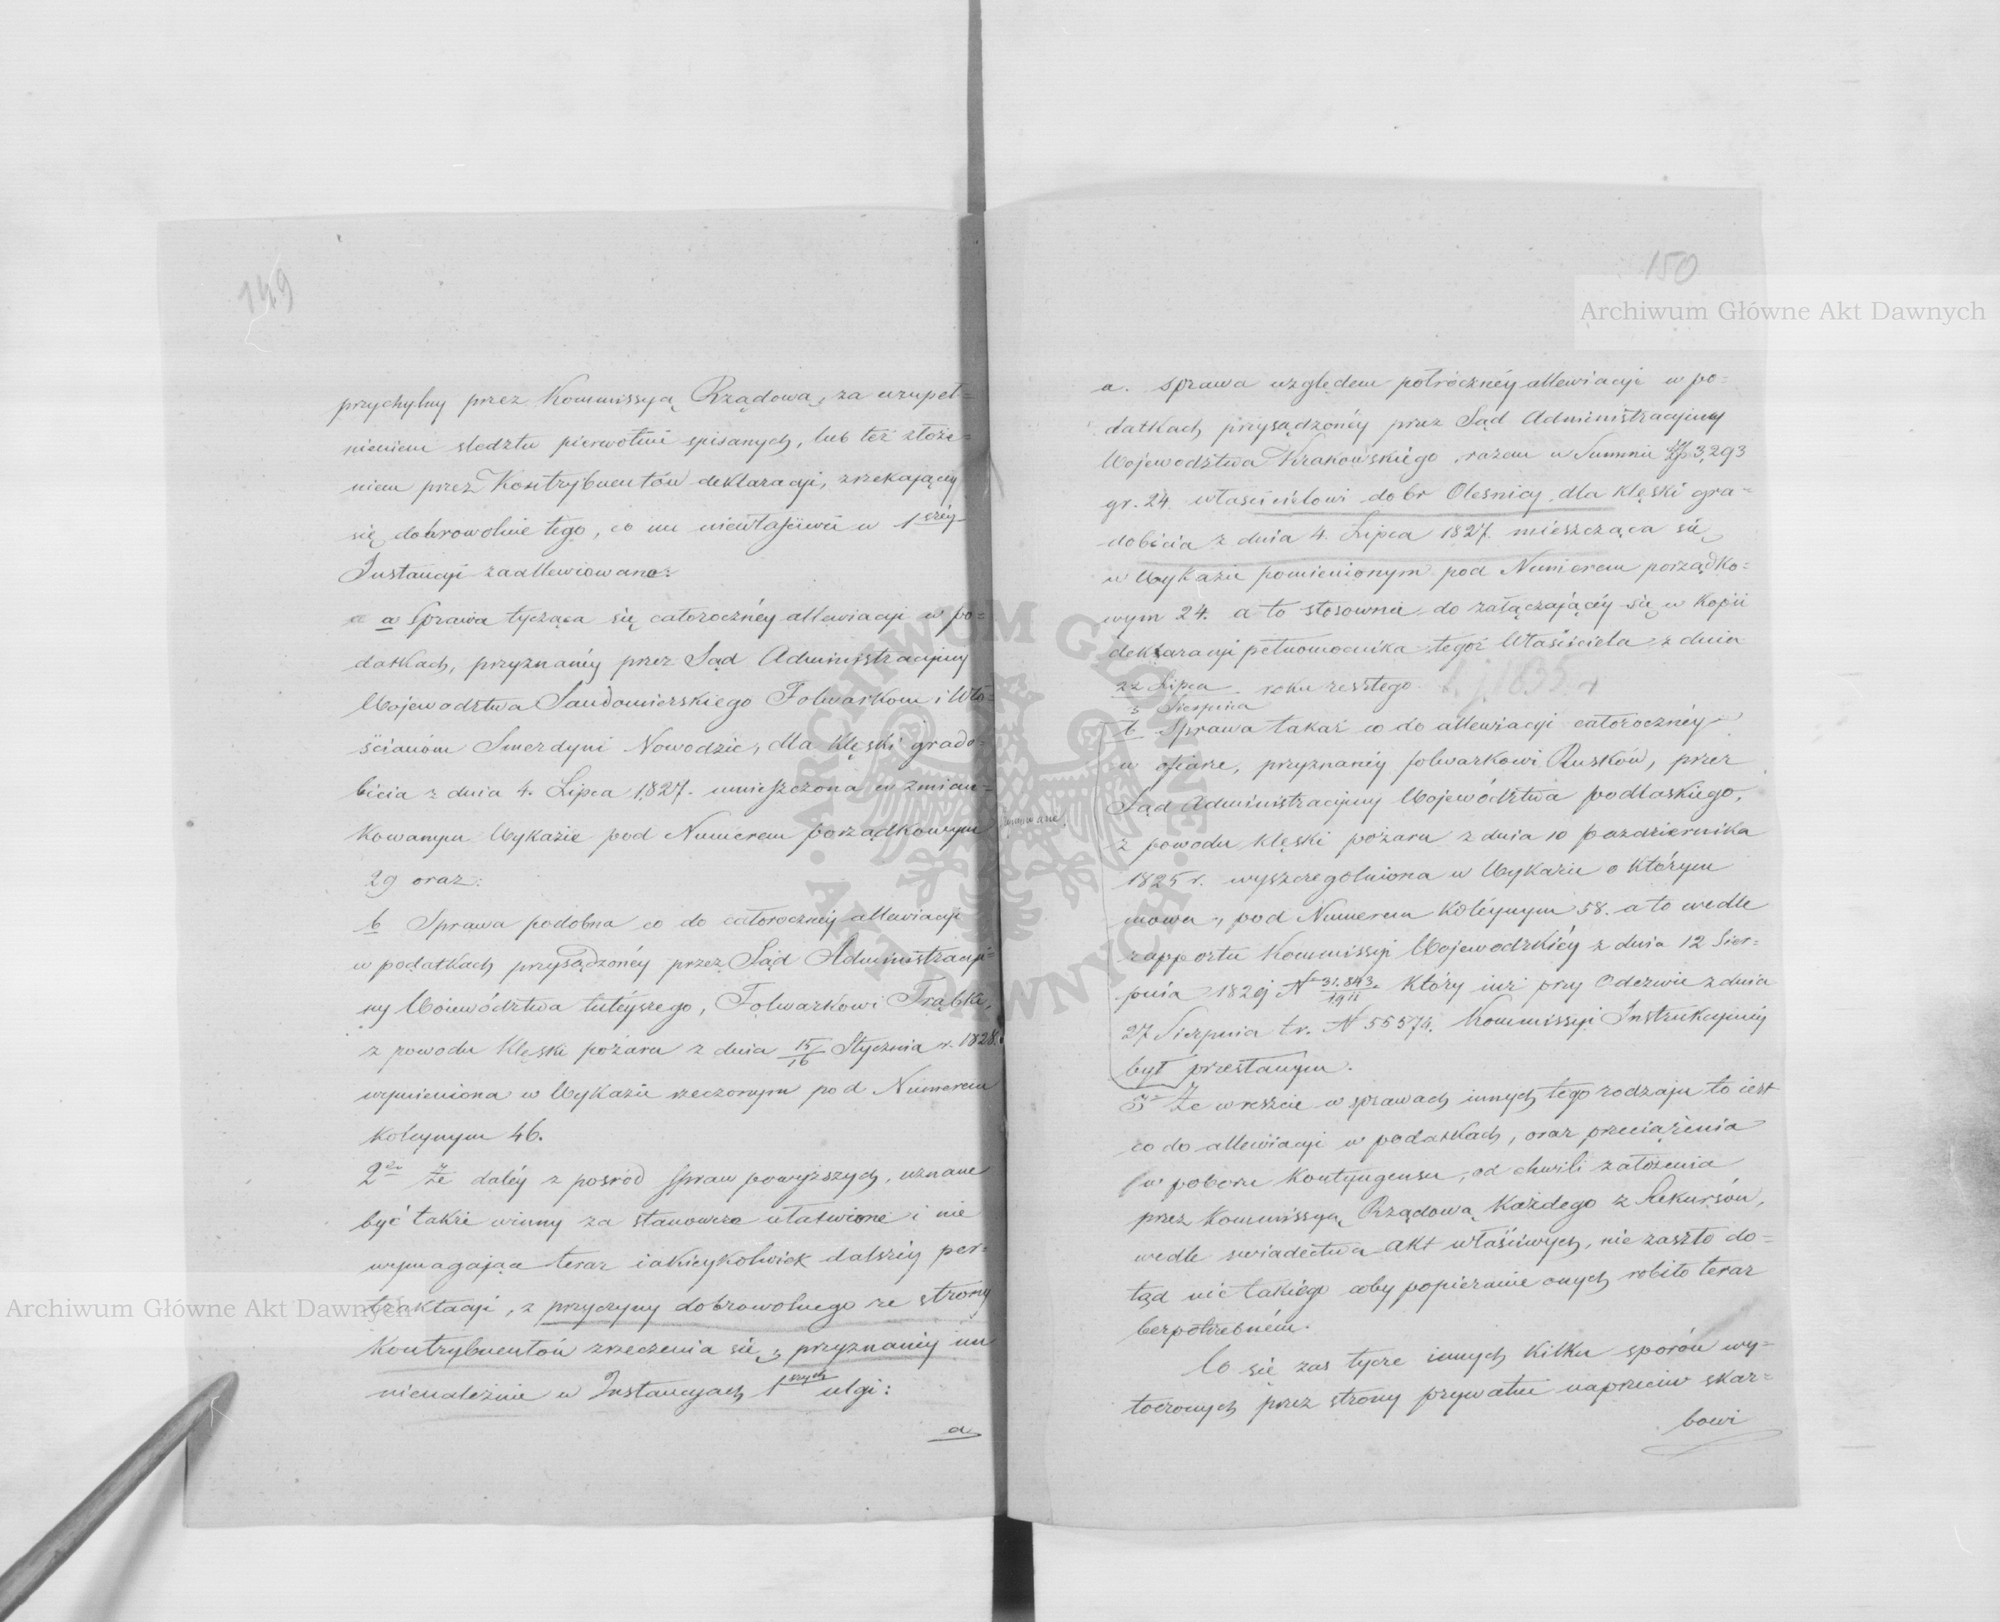 149
przychylny przez Kommissyą Rządową, za uzupeł=
nieniem śledztw pierwotnie spisanych, lub też złoże=
niem przez Kontrybuentów deklaracyi, zrzekającej
się dobrowolnie tego, co im niewłaściwie w 1széy
Instancyi zaallewiowano:
a Sprawa tycząca się całorocznéy allewiacyi w po=
datkach, przyznanéy przez Sąd Administracyjny
Województwa Sandomierskiego Folwarkom i Wło=
ścianom Smerdyni Nowodzie, dla klęski grado=
bicia z dnia 4. Lipca 1827. umieszczona w zmian=
kowanym Wykazie pod Numerem porządkowym
29 oraz:
b Sprawa podobna co do całorocznéy allewiacyi
w podatkach przysądzonéy przez Sąd Administracyi=
ny Województwa tutéyszego, Folwarkowi Trąbki,
z powodu klęski pożaru z dnia 15/16 Stycznia r. 1828.
wymieniona w Wykazie rzeczonym pod Numerem
koleynym 46.
2do Że daléy z pośród spraw powyższych, uznane
być także winny za stanowczo ułatwione i nie
wymagające teraz iakieykolwiek dalszéy per=
traktacyi, z przyczyny dobrowolnego ze strony
Kontrybuentów zrzeczenia się, przyznanéy im
nienależnie w Instancyach 1szych ulgi:
a
150
Archiwum Główne Akt Dawnych
a. Sprawa względem półrocznéy allewiacyi w po=
datkach przysądzonéy przez Sąd Administracyjny
Województwa Krakowskiego, razem w Summie Złp 3,293
gr. 24. właścicielowi dobr Oleśnicy, dla klęski gra=
dobicia z dnia 4. Lipca 1827. mieszcząca się
w Wykazie pomienionym pod Numerem porządko=
wym 24. a to stosownie do załączającéy się w Kopii
deklaracyi pełnomocnika tegoż Właściciela z dnia
22 Lipca/3 Sierpnia roku zeszłego. t. j. 1835. r
b Sprawa takaż co do allewiacyi całorocznéy
w ofiarze, przyznanéy folwarkowi Rusków, przez
Sąd Administracyjny Województwa podlaskiego,
z powodu klęski pożaru z dnia 10 pazdziernika
1825 r. wyszczególniona w Wykazie o którym
mowa, pod Numerem koléynym 58. a to wedle
rapportu Kommissyi Wojewodzkiéy z dnia 12 Sier=
pnia 1829 N 31.843/1911 który iuż przy Odezwie z dnia
27 Sierpnia t. r. N 55574. Kommissyi Instrukcyinéy
był przesłanym.
3o Że wreszcie w sprawach innych tego rodzaju to iest
co do allewiacyi w podatkach, oraz przeciążenia
w poborze Kontyngensu, od chwili założenia
przez Kommissyą Rządową każdego z Rekursów,
wedle swiadectwa Akt właściwych, nie zaszło do=
tąd nic takiego coby popieranie onych robiło teraz
bezpotrzebném.
Co się zas tycze innych kilku sporów wy=
toczonych przez strony prywatne naprzeciw skar=
bowi
Archiwum Główne Akt Dawnych
ARCHIWUM GŁÓWNE AKT DAWNYCH